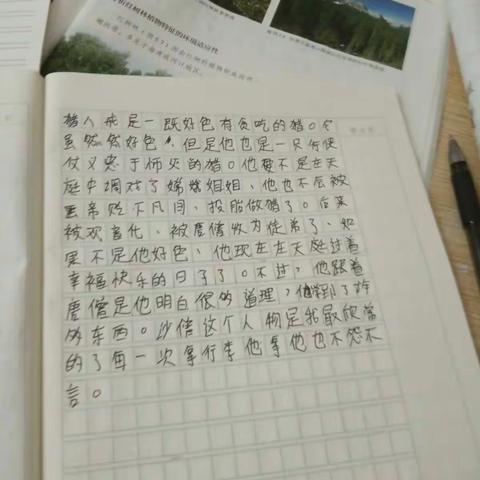 析红树林植物特征的环境适应性
猪八戒是一既好色有贪吃的猪。个
虽然然好色，但是他也是一只行侠
仗义忠于师父的猪。他要不是在天
庭中调戏了嫦娥姐姐，他也不会被
玉帝贬下凡间，投胎做猪了。后来
被观音化、被唐僧收为徒弟了、如
果不是他好色、他现在在天庭过着
幸福快乐的日子了。不过，他跟着
唐僧是他明白很多道理，他学到了许
多东西。沙僧这个人物是我最欣赏
的了每一次拿行李他拿他也不怨不
言。